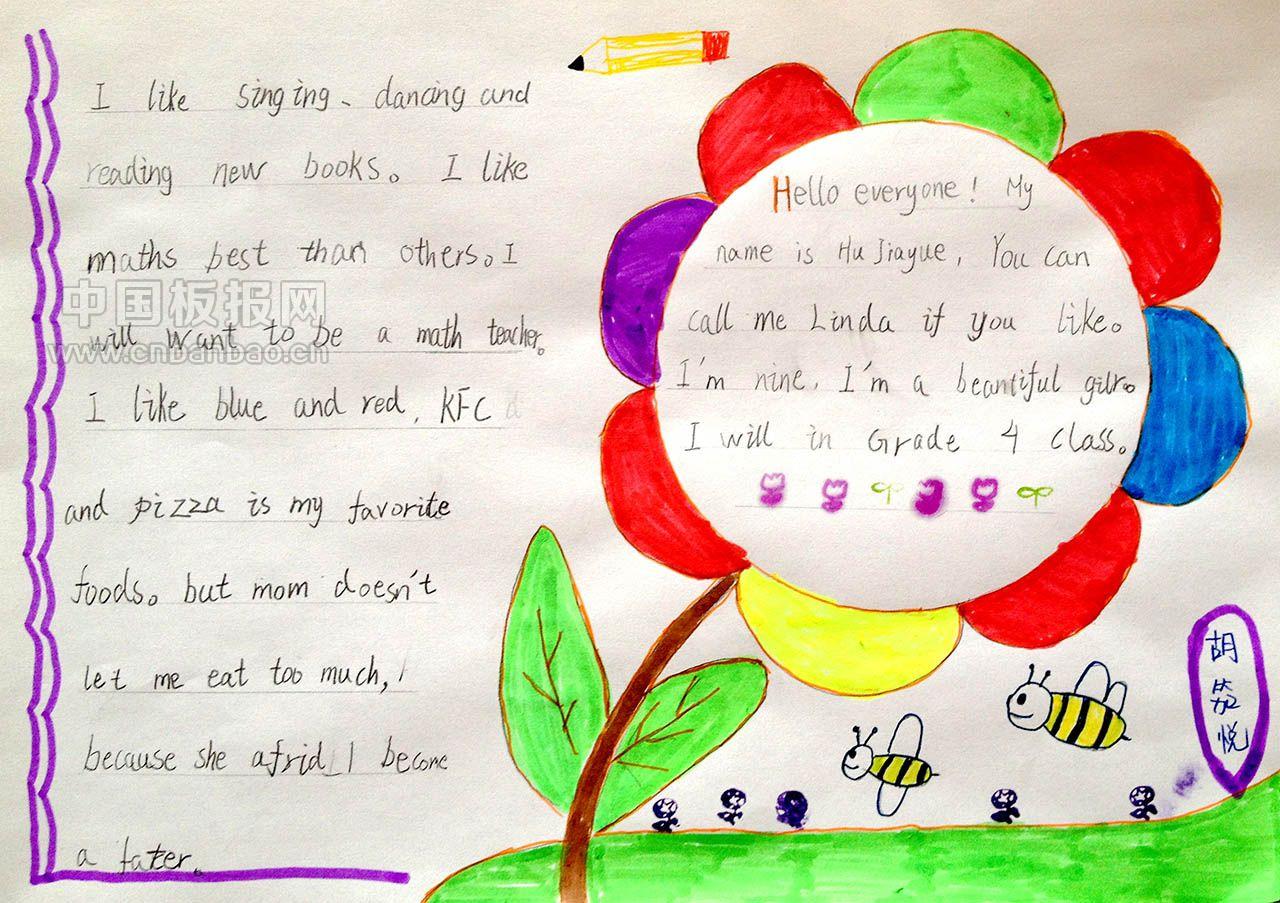 I like singing、dancing and
reading new books。I like
maths best than others。I
will want to be a math teacher。
I like blue and red, KFC
and pizza is my favorite
foods。but mom doesn't
let me eat too much,
because she afrid I become
a fater。
Hello everyone! My
name is Hu Jiayue, You can
call me Linda if you like。
I'm nine, I'm a beantiful gilr。
I will in Grade 4 class。
胡笳悦
中国板报网
www.cnbanbao.cn